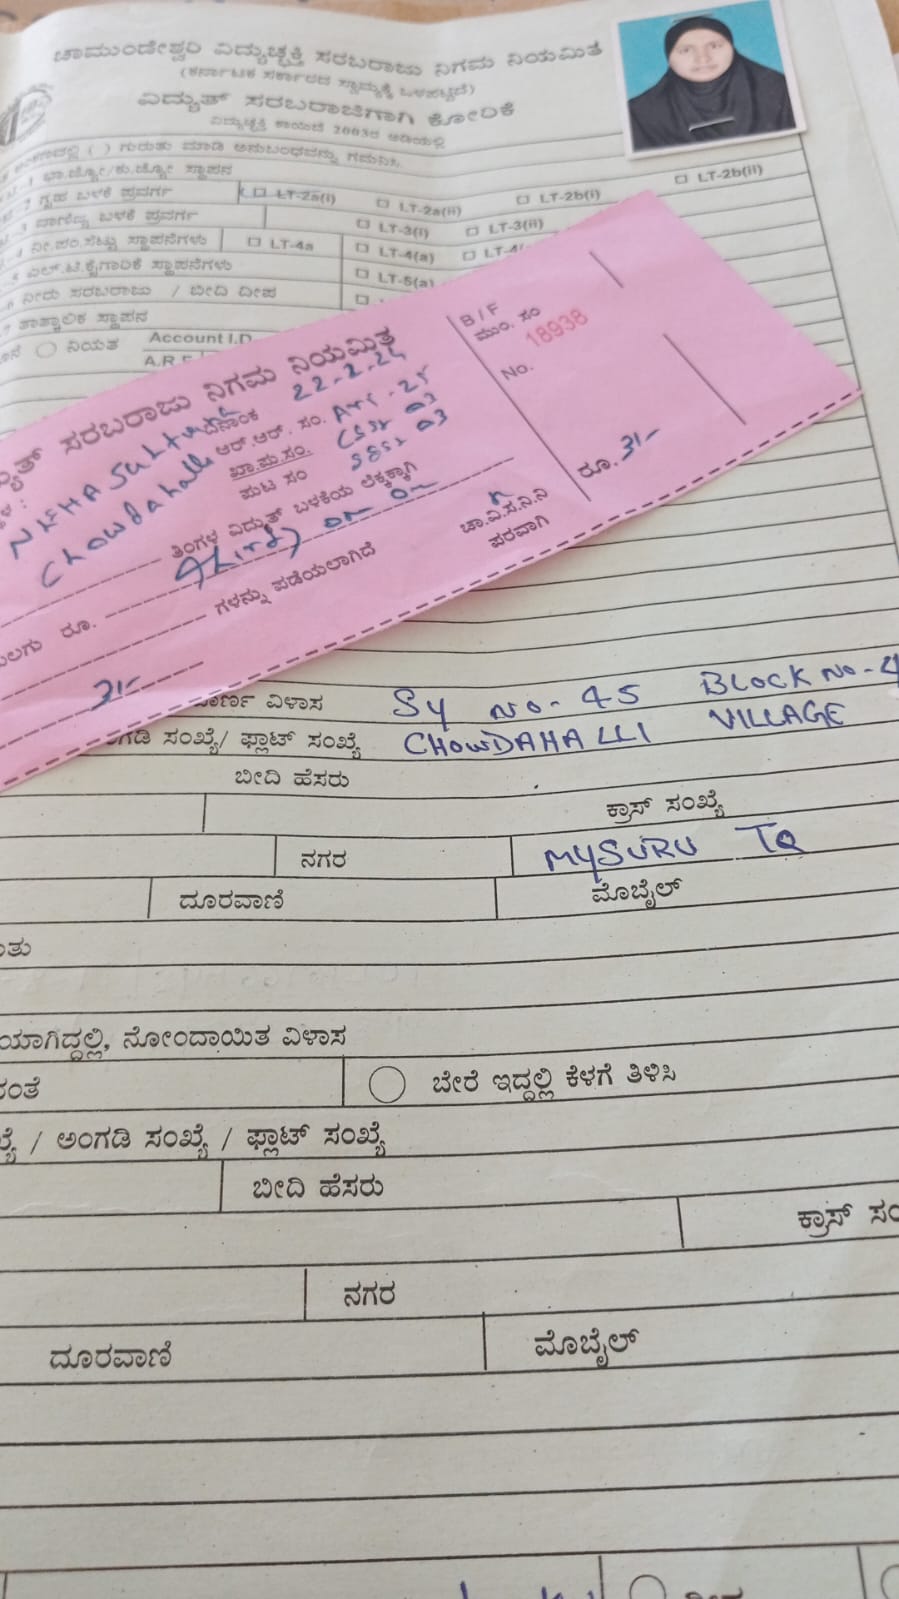 ಚಾಮುಂಡೇಶ್ವರಿ ವಿದ್ಯುಚ್ಛಕ್ತಿ ಸರಬರಾಜು ನಿಗಮ ನಿಯಮಿತ
(ಕರ್ನಾಟಕ ಸರ್ಕಾರದ ಸ್ವಾಮ್ಯಕ್ಕೆ ಒಳಪಟ್ಟಿದೆ)
ವಿದ್ಯುತ್ ಸರಬರಾಜಿಗಾಗಿ ಕೋರಿಕೆ
ವಿದ್ಯುಚ್ಛಕ್ತಿ ಕಾಯಿದೆ 2003ರ ಅಡಿಯಲ್ಲಿ
( ) ಗುರುತು ಮಾಡಿ ಅನುಬಂಧವನ್ನು ಗಮನಿಸಿ
1 ಭಾ.ಜ್ಯೋ/ಕು.ಜ್ಯೋ ಸ್ಥಾಪನ
2 ಗೃಹ ಬಳಕೆ ಪ್ರವರ್ಗ LT-2a(i) LT-2a(ii) LT-2b(i) LT-2b(ii)
3 ವಾಣಿಜ್ಯ ಬಳಕೆ ಪ್ರವರ್ಗ LT-3(i) LT-3(ii)
4 ನೀ.ಪಂ.ಸೆಟ್ಟು ಸ್ಥಾಪನೆಗಳು LT-4a LT-4(a) LT-4
ಎಲ್.ಟಿ.ಕೈಗಾರಿಕೆ ಸ್ಥಾಪನೆಗಳು LT-5(a)
6 ನೀರು ಸರಬರಾಜು / ಬೀದಿ ದೀಪ
7 ತಾತ್ಕಾಲಿಕ ಸ್ಥಾಪನ
ನಿಯತ Account I.D
A.R.F
ಸರಬರಾಜು ನಿಗಮ ನಿಯಮಿತ
B/F
ಮುಂ. ಸಂ
18938
No.
NEHA SULTANA
ದಿನಾಂಕ 22-2-24
Chowdahalli
ಆರ್.ಆರ್. ಸಂ.
ಖಾ.ಪು.ಸಂ.
ಪುಟ ಸಂ
ತಿಂಗಳ ವಿದ್ಯುತ್ ಬಳಕೆಯ ಲೆಕ್ಕಕ್ಕಾಗಿ
ರೂ.
ಗಳನ್ನು ಪಡೆಯಲಾಗಿದೆ
ಚಾ.ವಿ.ಸ.ನಿ.ನಿ
ಪರವಾಗಿ
ರೂ. 31-
31-
ವಿಳಾಸ Sy NO-45 BLOCK NO-4
ಸಂಖ್ಯೆ/ ಫ್ಲಾಟ್ ಸಂಖ್ಯೆ CHOWDAHALLI VILLAGE
ಬೀದಿ ಹೆಸರು
ಕ್ರಾಸ್ ಸಂಖ್ಯೆ
ನಗರ MYSURU TQ
ದೂರವಾಣಿ ಮೊಬೈಲ್
ಯಾಗಿದ್ದಲ್ಲಿ, ನೋಂದಾಯಿತ ವಿಳಾಸ
ಬೇರೆ ಇದ್ದಲ್ಲಿ ಕೆಳಗೆ ತಿಳಿಸಿ
/ ಅಂಗಡಿ ಸಂಖ್ಯೆ / ಫ್ಲಾಟ್ ಸಂಖ್ಯೆ
ಬೀದಿ ಹೆಸರು
ಕ್ರಾಸ್ ಸಂ
ನಗರ
ದೂರವಾಣಿ ಮೊಬೈಲ್